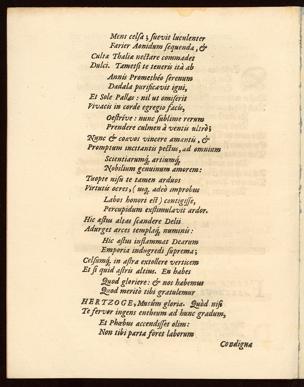 Mens celsa; suevit luculenter
Farier Aonidum sequenda, &
Culta Thalia nectare commadet
Dulci. Tametsi te teneris ità ab
Annis Promethéo serenum
Dadala purificavit igni,
Et Sole Pallas: nil ut omiserit
Vivacis in corde egregio facis,
Oestrive: nunc sublime rerum
Prendere culmen à ventis ultrò;
Nunc & coævos vincere amantis, &
Promptum incitantis pectus, ad omnium
Scientiarumq́, artiumq́,
Nobilium genuinum amorem:
Tuopte nisu te tamen arduos
Virtutis ocres, (usq, adeò improbus
Labos honori est) contigisse,
Percupidum exstimulavit ardor.
Hic æstus altas scandere Delii
Adurges arces templaq́, numinii:
Hic æstus inflammat Dearum
Emporia indugredi suprema;
Celsumq́, in astra extollere verticem
Et si quid astris altius. En habes
Quod gloriere: & nos habemus
Quod meritò tibi gratulemur
HERTZOGE, Musûm gloria. Quòd nisi
Te fervor ingens entheum ad hunc gradum,
Et Phœbus accendisset olim:
Non tibi parta foret laborum
Condigna